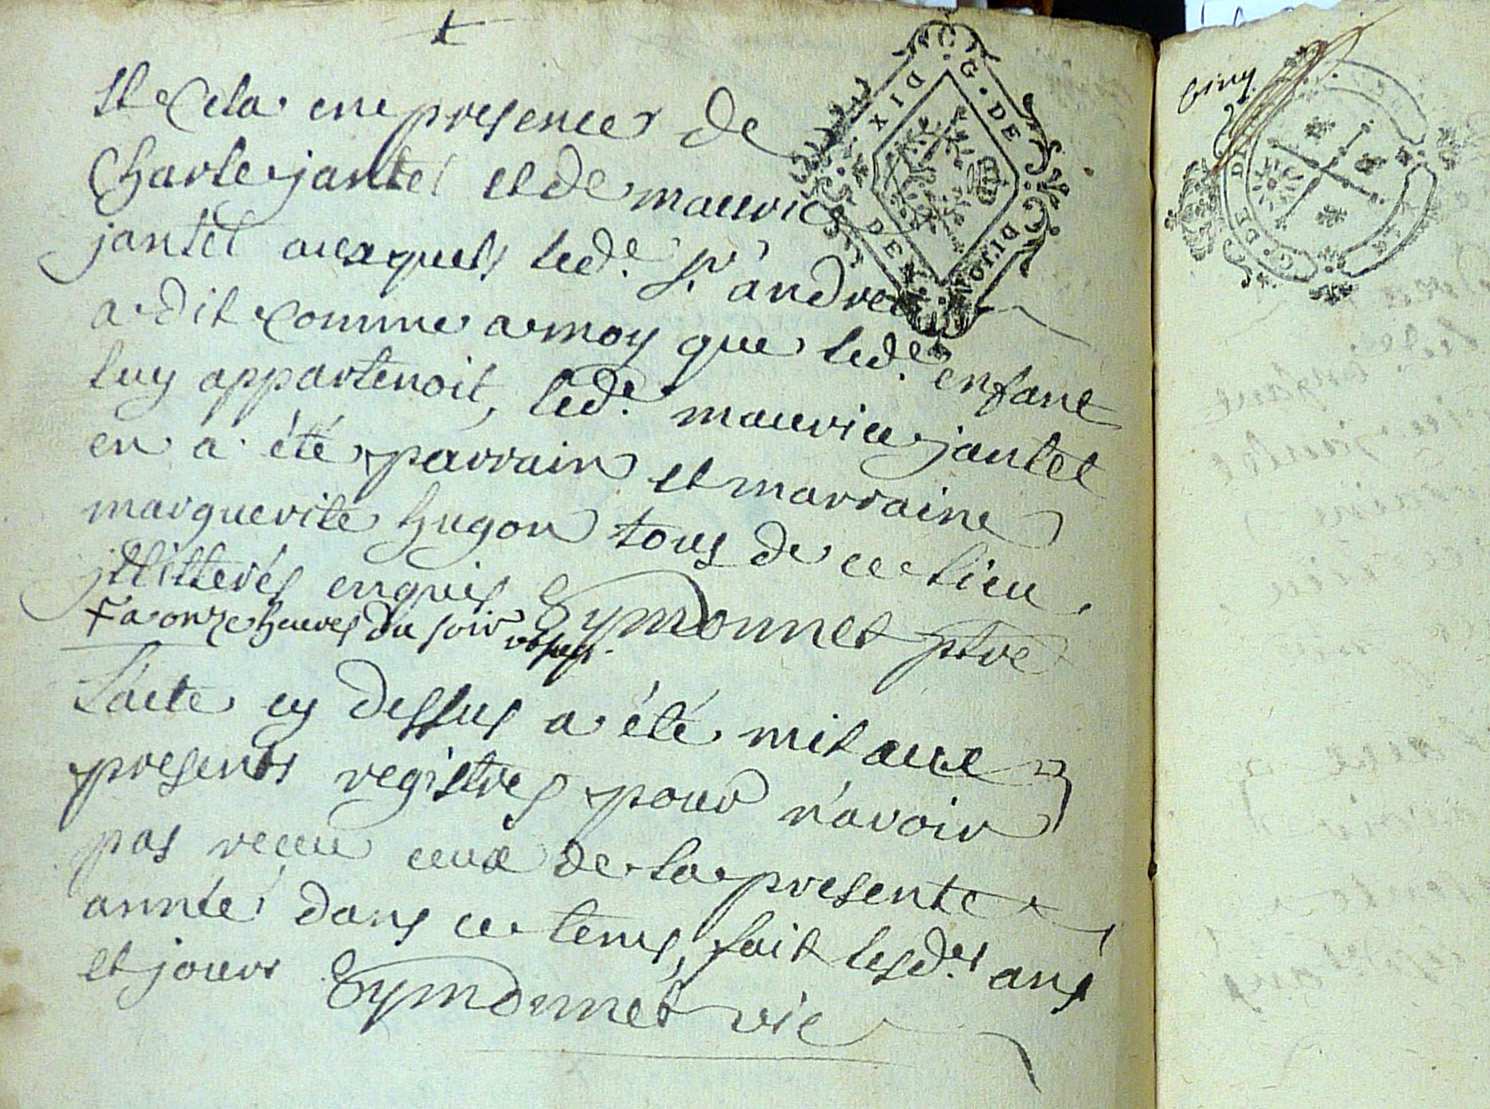 et cela en presence de
Charle jantet et de maurice
jantet auxquels led.e Sr andré
a dit comme a moy que led.e enfant
luy appartenoit, led.e maurice jantet
en a été parrain et marraine
marguerite hugon tous de ce lieu
jllitterés enquis Eymonnet ptre
+ a onze heures du soir
L'acte cy dessus a été mit aux
presents registres pour n'avoir
pas receu ceux de la presente
année dans ce tems, fait lesd.es ans
et jours Eymonnet vic
G. DE DIJON
DIX DE
Cinq
G. DE DI